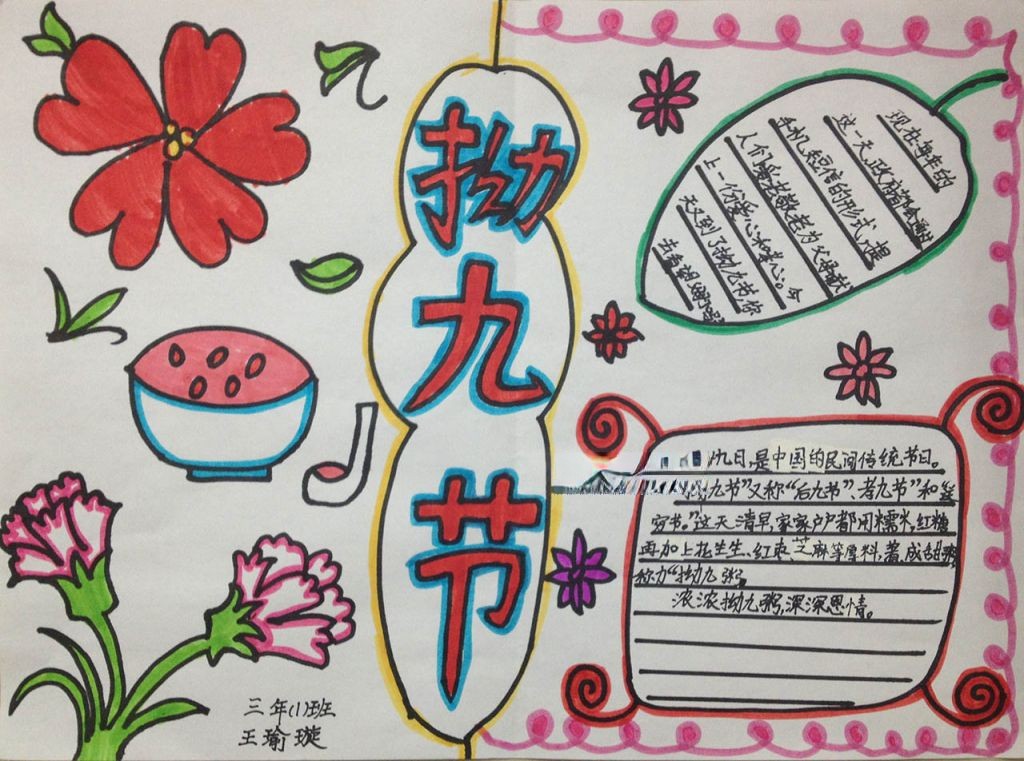 拗九节
现在每年的
这一天政府都会通过
手机短信的形式,提
人们爱老敬老为父母献
上一份爱心和孝心。今
天又到了拗九节你
九日,是中国的民间传统节日。
九节”又称“后九节”、孝九节”和“送
穷节。”这天清早,家家户户都用糯米,红糖
再加上花生、红枣、芝麻等原料,煮成甜粥
称为“拗九粥
浓浓拗九粥,深深恩情。
三年(1)班
王瑜璇